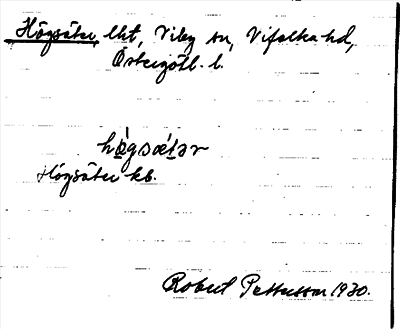 Högsäter, lht, Viby sn, Vifolka hd,
Östergötl. l.
hø̀gsætər
Högsäter kb.
Robert Pettersson 1930.